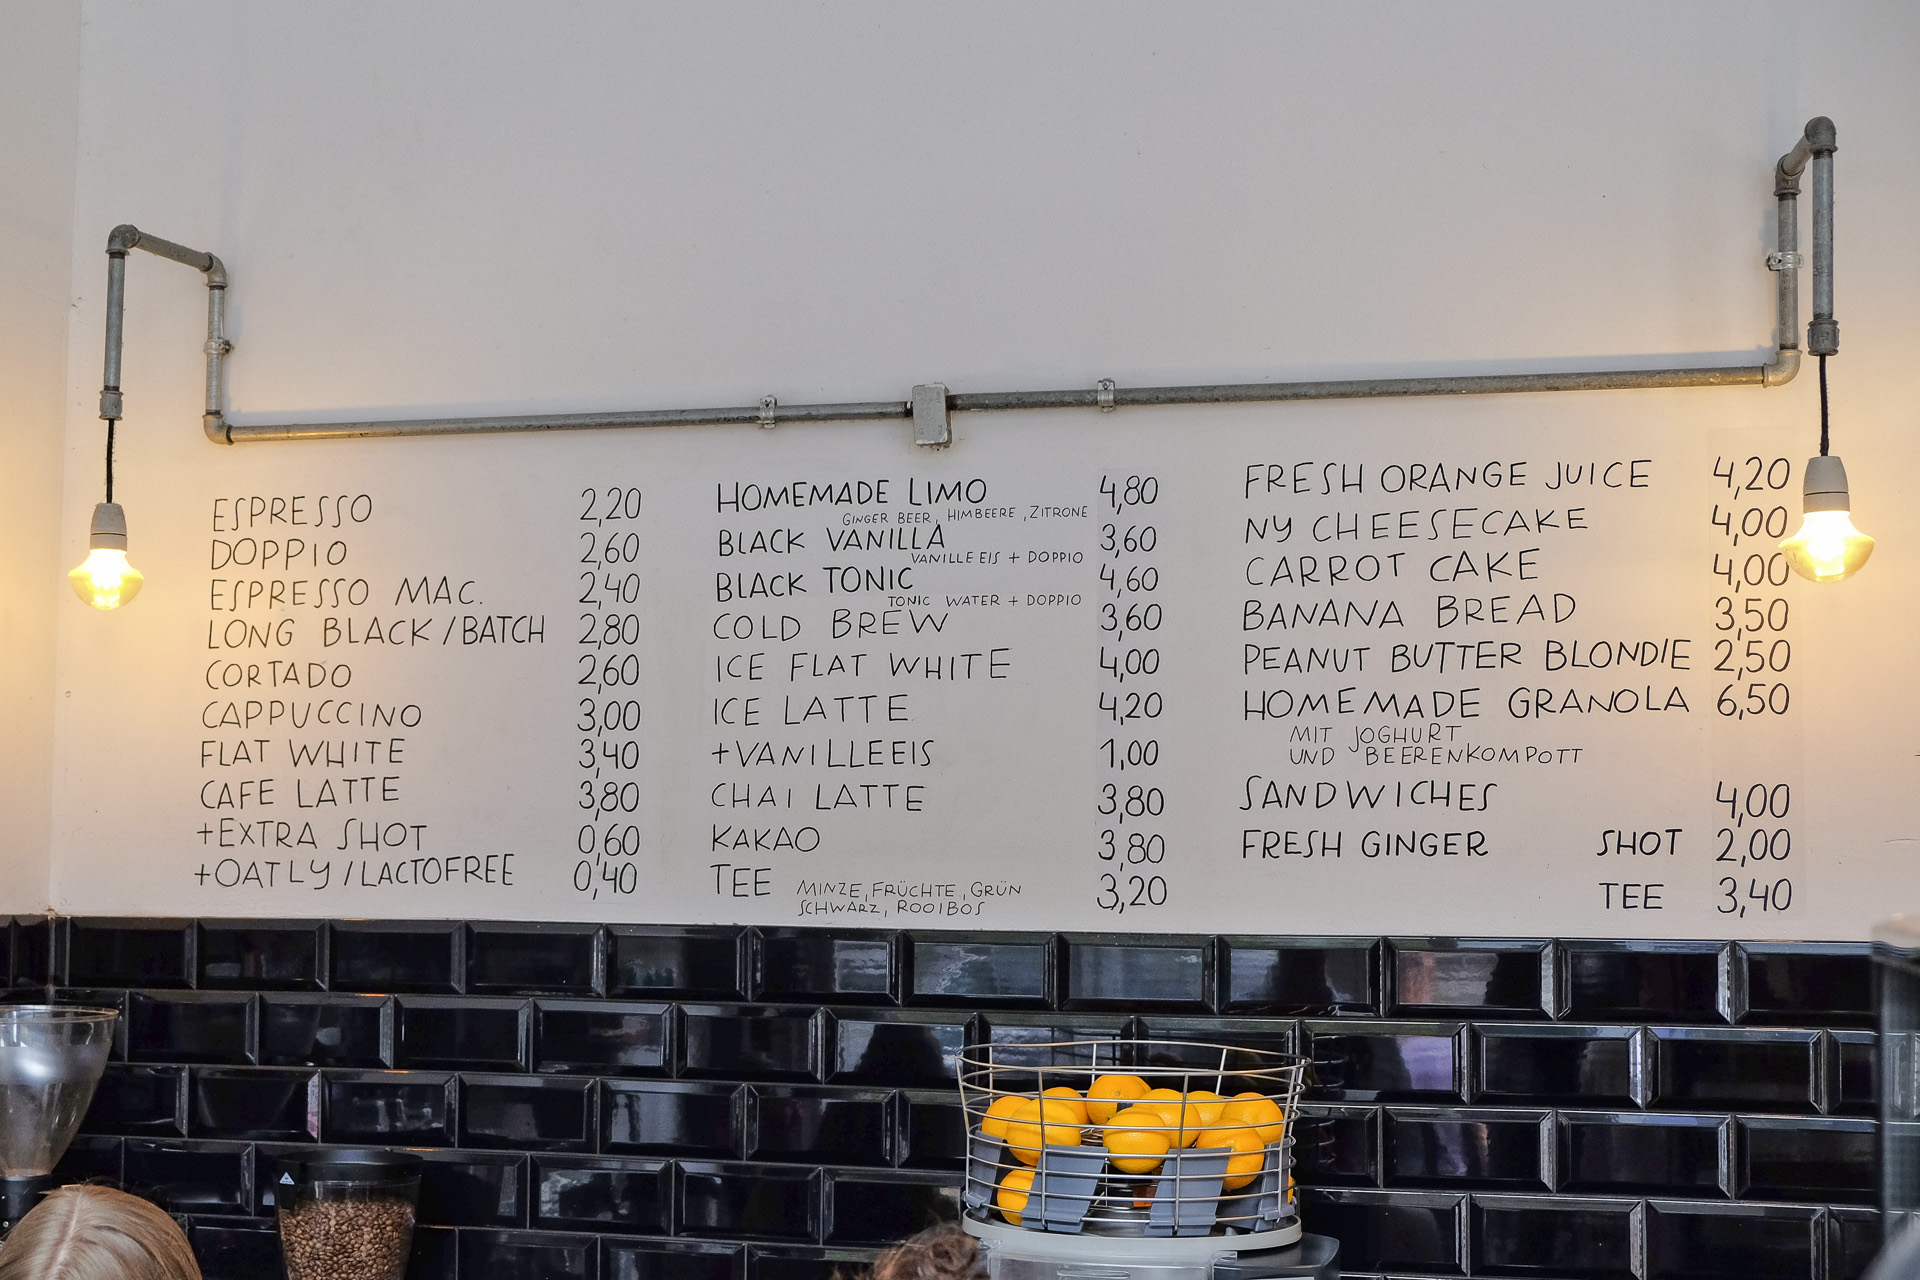 ESPRESSO 2,20
DOPPIO 2,60
ESPRESSO MAC. 2,40
LONG BLACK/BATCH 2,80
CORTADO 2,60
CAPPUCCINO 3,00
FLAT WHITE 3,40
CAFE LATTE 3,80
+EXTRA SHOT 0,60
+OATLY/LACTOFREE 0,40
HOMEMADE LIMO 4,80
GINGER BEER, HIMBEERE, ZITRONE
BLACK VANILLA 3,60
VANILLE EIS + DOPPIO
BLACK TONIC 4,60
TONIC WATER + DOPPIO
COLD BREW 3,60
ICE FLAT WHITE 4,00
ICE LATTE 4,20
+VANILLEEIS 1,00
CHAI LATTE 3,80
KAKAO 3,80
TEE MINZE, FRÜCHTE, GRÜN 3,20
SCHWARZ, ROOIBOS
FRESH ORANGE JUICE 4,20
NY CHEESECAKE 4,00
CARROT CAKE 4,00
BANANA BREAD 3,50
PEANUT BUTTER BLONDIE 2,50
HOMEMADE GRANOLA 6,50
MIT JOGHURT
UND BEERENKOMPOTT
SANDWICHES 4,00
FRESH GINGER SHOT 2,00
TEE 3,40